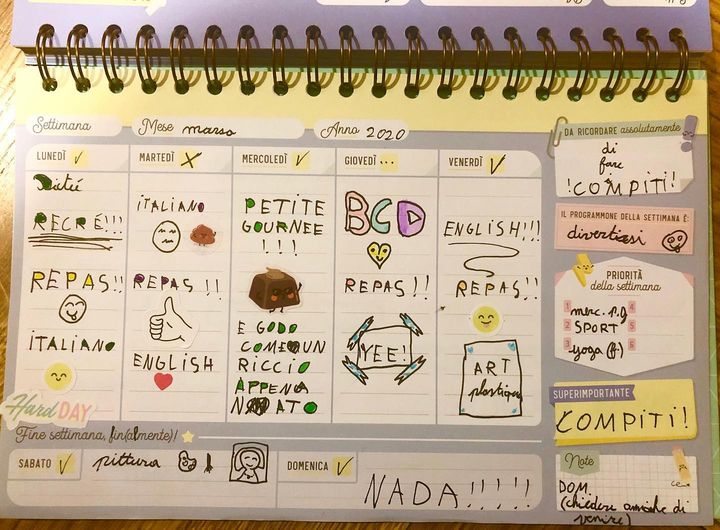 Settimana
Mese marso
Anno 2020
LUNEDÌ
RECRÉ!!!
REPAS!!
iTALIANO
Hard DAY
MARTEDÌ
iTALIANO
REPAS !!
ENGLISH
MERCOLEDÌ
PETITE
GOURNEE
!!!
E GODO
COME UN
RICCIO
APPENA
NATO
GIOVEDÌ...
BCD
REPAS!!
YEE!
VENERDÌ
ENGLISH!!!
REPAS!
ART
plastique
Fine settimana, fin(almente)!
SABATO
pittura
DOMENICA
NADA!!!!!
DA RICORDARE assolutamente
di
fare
!COMPITI!
IL PROGRAMMONE DELLA SETTIMANA È:
divertirsi
PRIORITÀ
della settimana
1 merc. p.g 4
2 SPORT 5
3 yoga (f.) 6
SUPERIMPORTANTE
COMPITI!
Note
DOM.
(chiedere amiche di
venire)